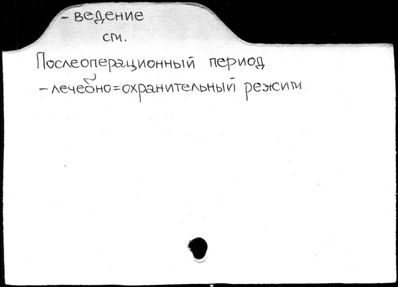 - ведение
см.
Послеоперационный период
- лечебно=охранительный режим